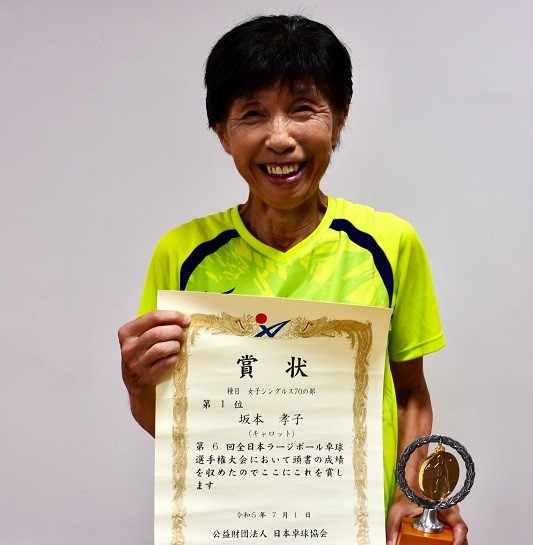 賞状
種目 女子シングルス70の部
第1位
坂本 孝子
(キャロット)
第6回全日本ラージボール卓球
選手権大会において頭書の成績
を収めたのでここにこれを賞し
ます
令和5年7月1日
公益財団法人 日本卓球協会